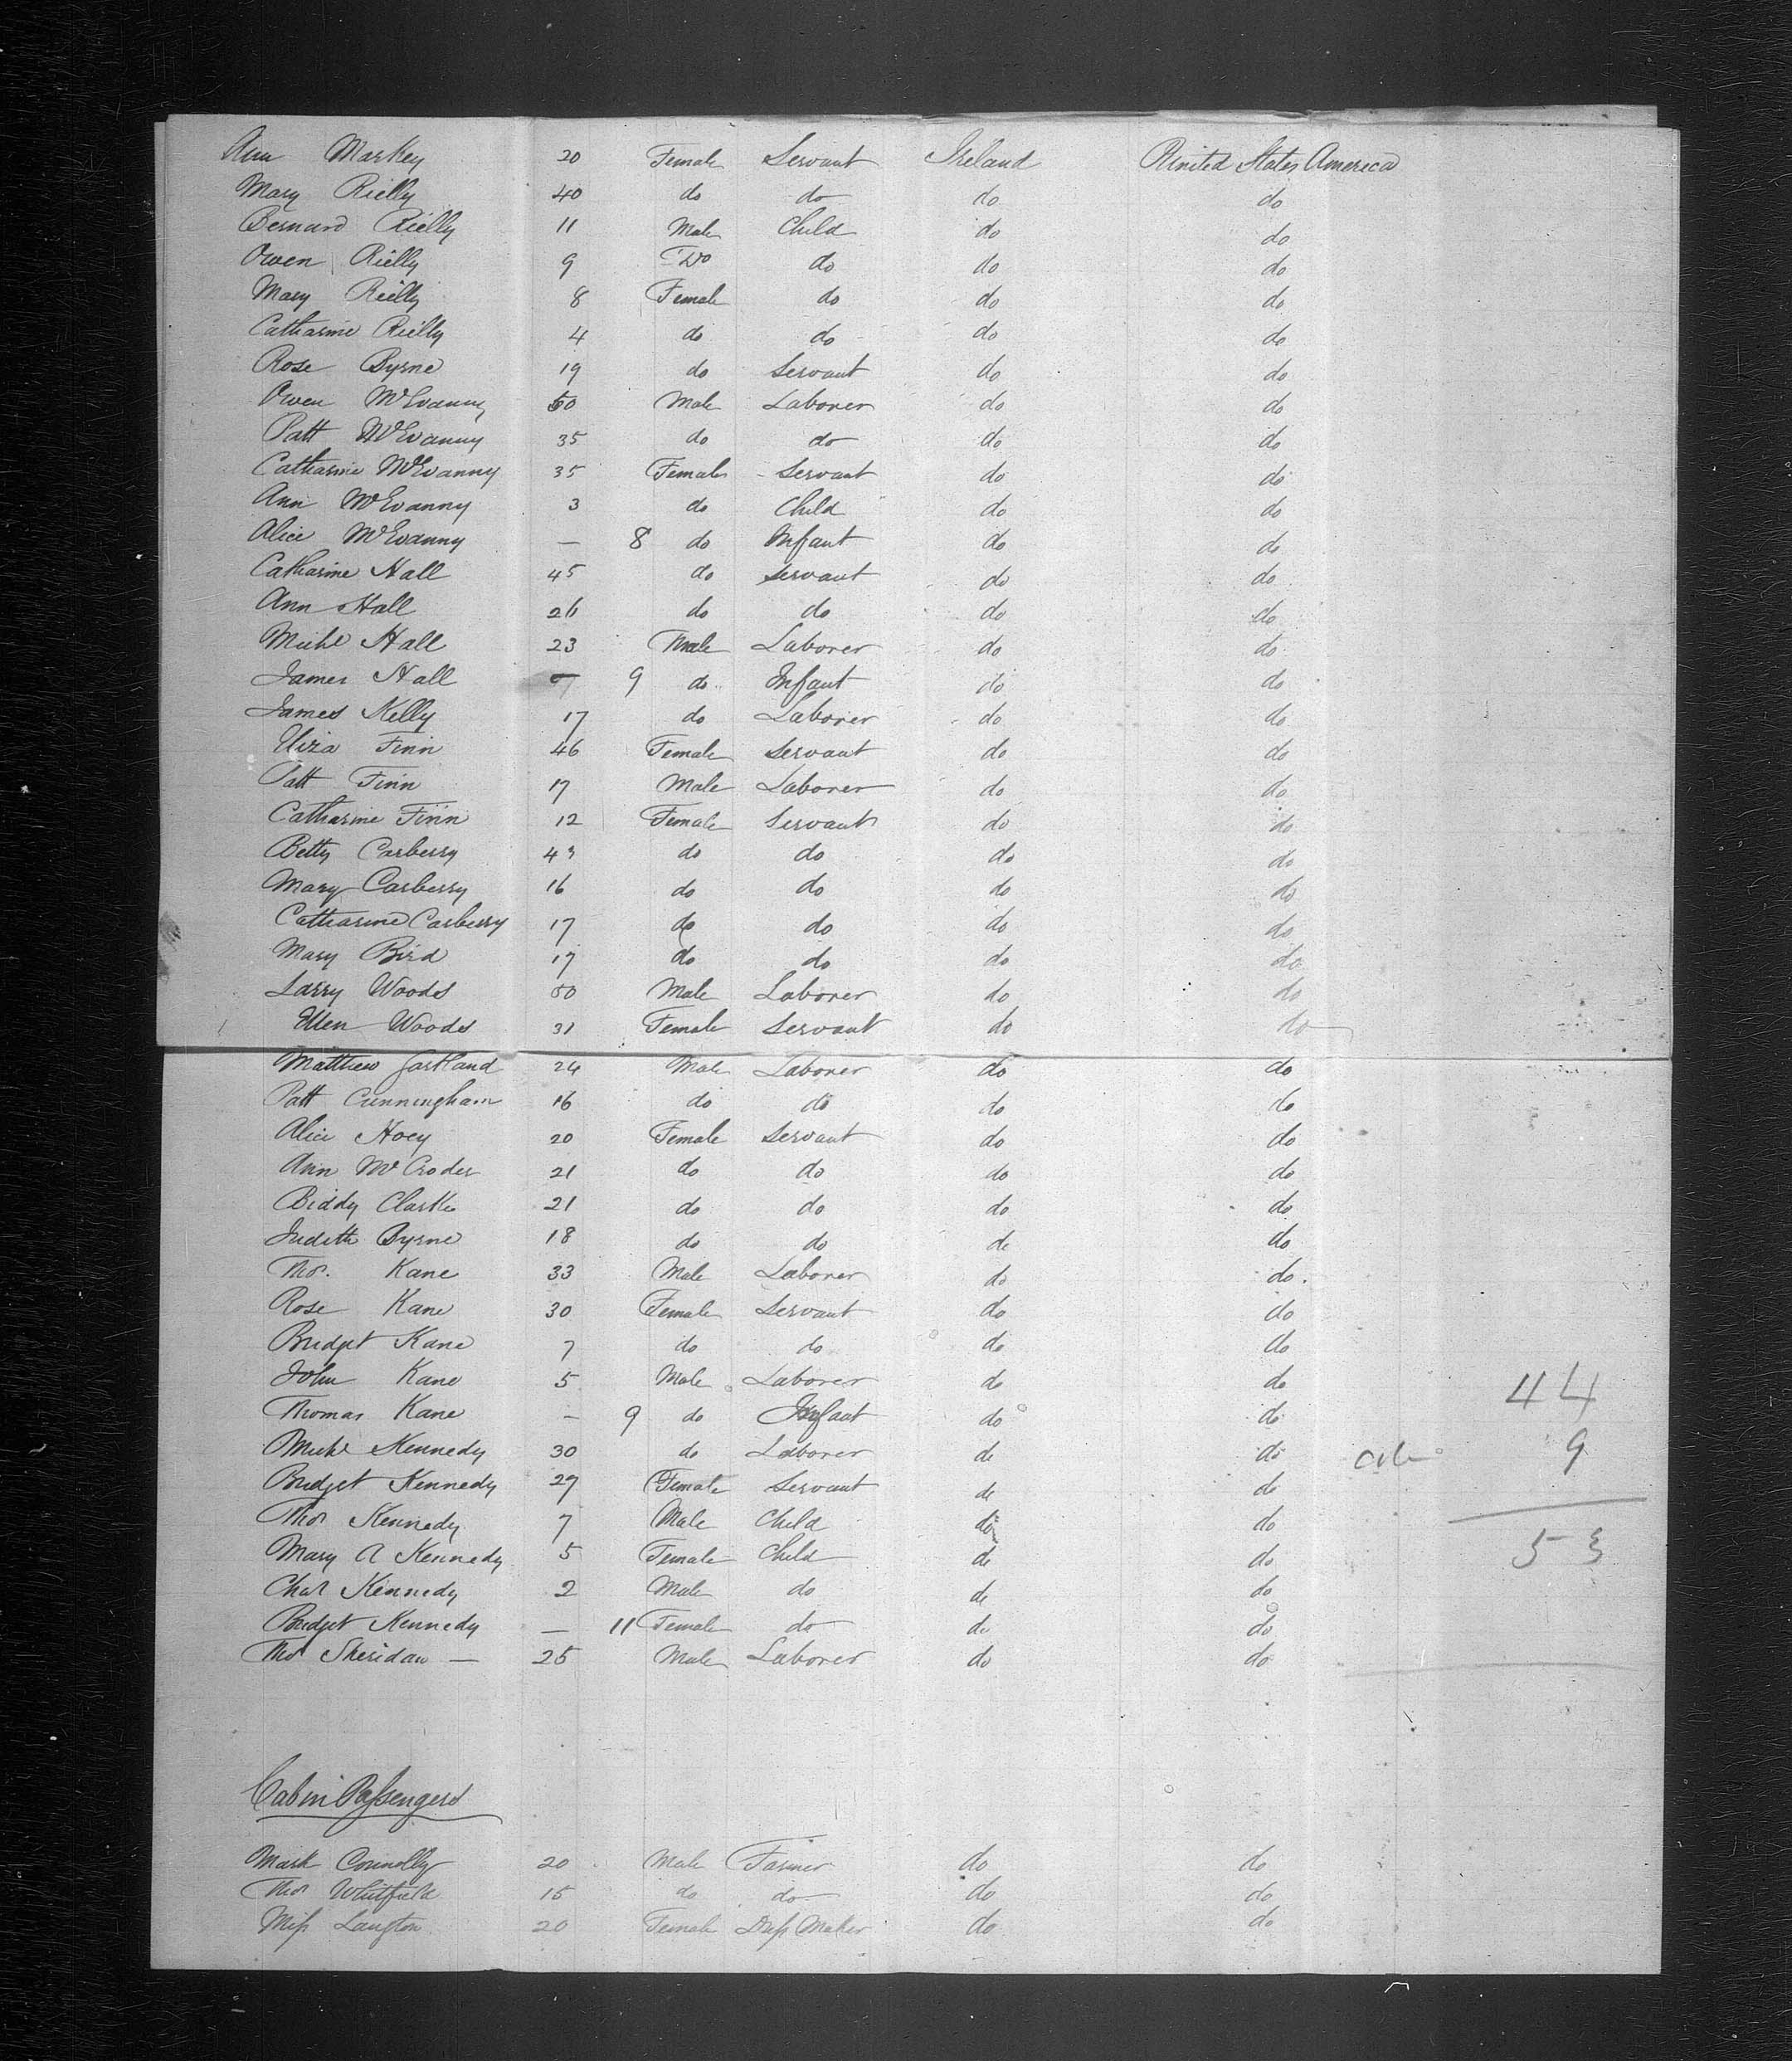 Ann Markey 20 Female Servant Ireland United States America
Mary Rielly 40 do do do do
Bernard Rielly 11 Male Child do do
Owen Rielly 9 Do do do do
Mary Rielly 8 Female do do do
Catharine Rielly 4 do do do do
Rose Byrne 19 do Servant do do
Owen McEvanny 50 Male Laborer do do
Patt McEvanny 35 do do do do
Catharine McEvanny 35 Female Servant do do
Ann McEvanny 3 do Child do do
Alice McEvanny — 8 do Infant do do
Catharine Hall 45 do Servant do do
Ann Hall 26 do do do do
Michl Hall 23 Male Laborer do do
James Hall — 9 do Infant do do
James Kelly 17 do Laborer do do
Eliza Finn 46 Female Servant do do
Patt Finn 17 Male Laborer do do
Catharine Finn 12 Female Servant do do
Betty Carberry 43 do do do do
Mary Carberry 16 do do do do
Catharine Carberry 17 do do do do
Mary Bird 17 do do do do
Larry Woods 50 Male Laborer do do
Ellen Woods 31 Female Servant do do
Matthew Gartland 24 Male Laborer do do
Patt Cunningham 16 do do do do
Alice Hoey 20 Female Servant do do
Ann McCroder 21 do do do do
Biddy Clarke 21 do do do do
Judith Byrne 18 do do do do
Thos. Kane 33 Male Laborer do do
Rose Kane 30 Female Servant do do
Bridget Kane 7 do do do do
John Kane 5 Male Laborer do do 44
Thomas Kane — 9 do Infant do do
Michl Kennedy 30 do Laborer do do 9
Bridget Kennedy 27 Female Servant do do
Thos Kennedy 7 Male Child do do
Mary A Kennedy 5 Female Child do do 53
Chas Kennedy 2 Male do do do
Bridget Kennedy — 11 Female do do do
Thos Sheridan — 25 Male Laborer do do
Cabin Passengers
Mark Connolly 20 Male Farmer do do
Thos Whitfield 15 do do do do
Miss Langton 20 Female Dress Maker do do